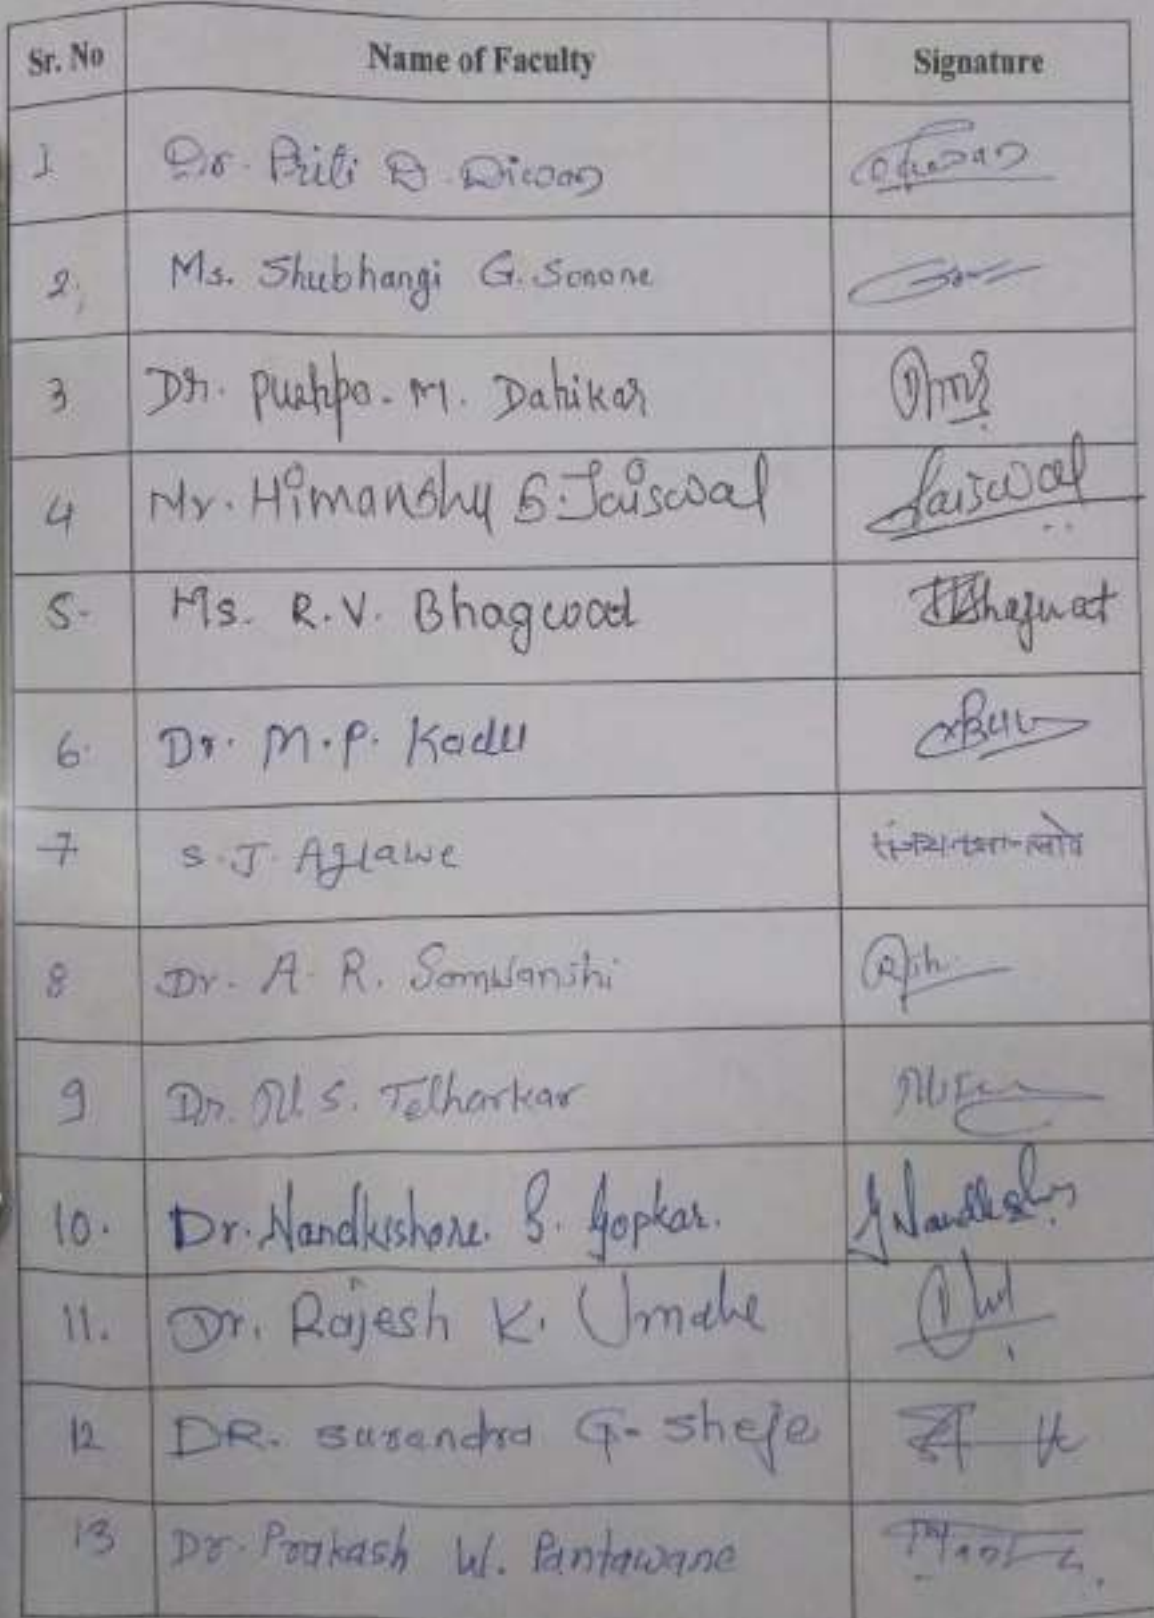 Sr. No Name of Faculty Signature
1 Dr. Priti D. Diwan
2, Ms. Shubhangi G. Sonone
3 Dr. Pushpa. M. Dahikar
4 Mr. Himanshu S. Jaiswal Jaiswal
5. Ms. R.V. Bhagwat Bhagwat
6. Dr. M.P. Kadu
7 S.J. Aglawe
8 Dr. A. R. Somwanshi
9 Dr. N. S. Telharkar
10. Dr. Nandkishore. S. Gopkar.
11. Dr. Rajesh K. Umale
12 DR. Surendra G. Sheje
13 Dr. Prakash W. Pantawane